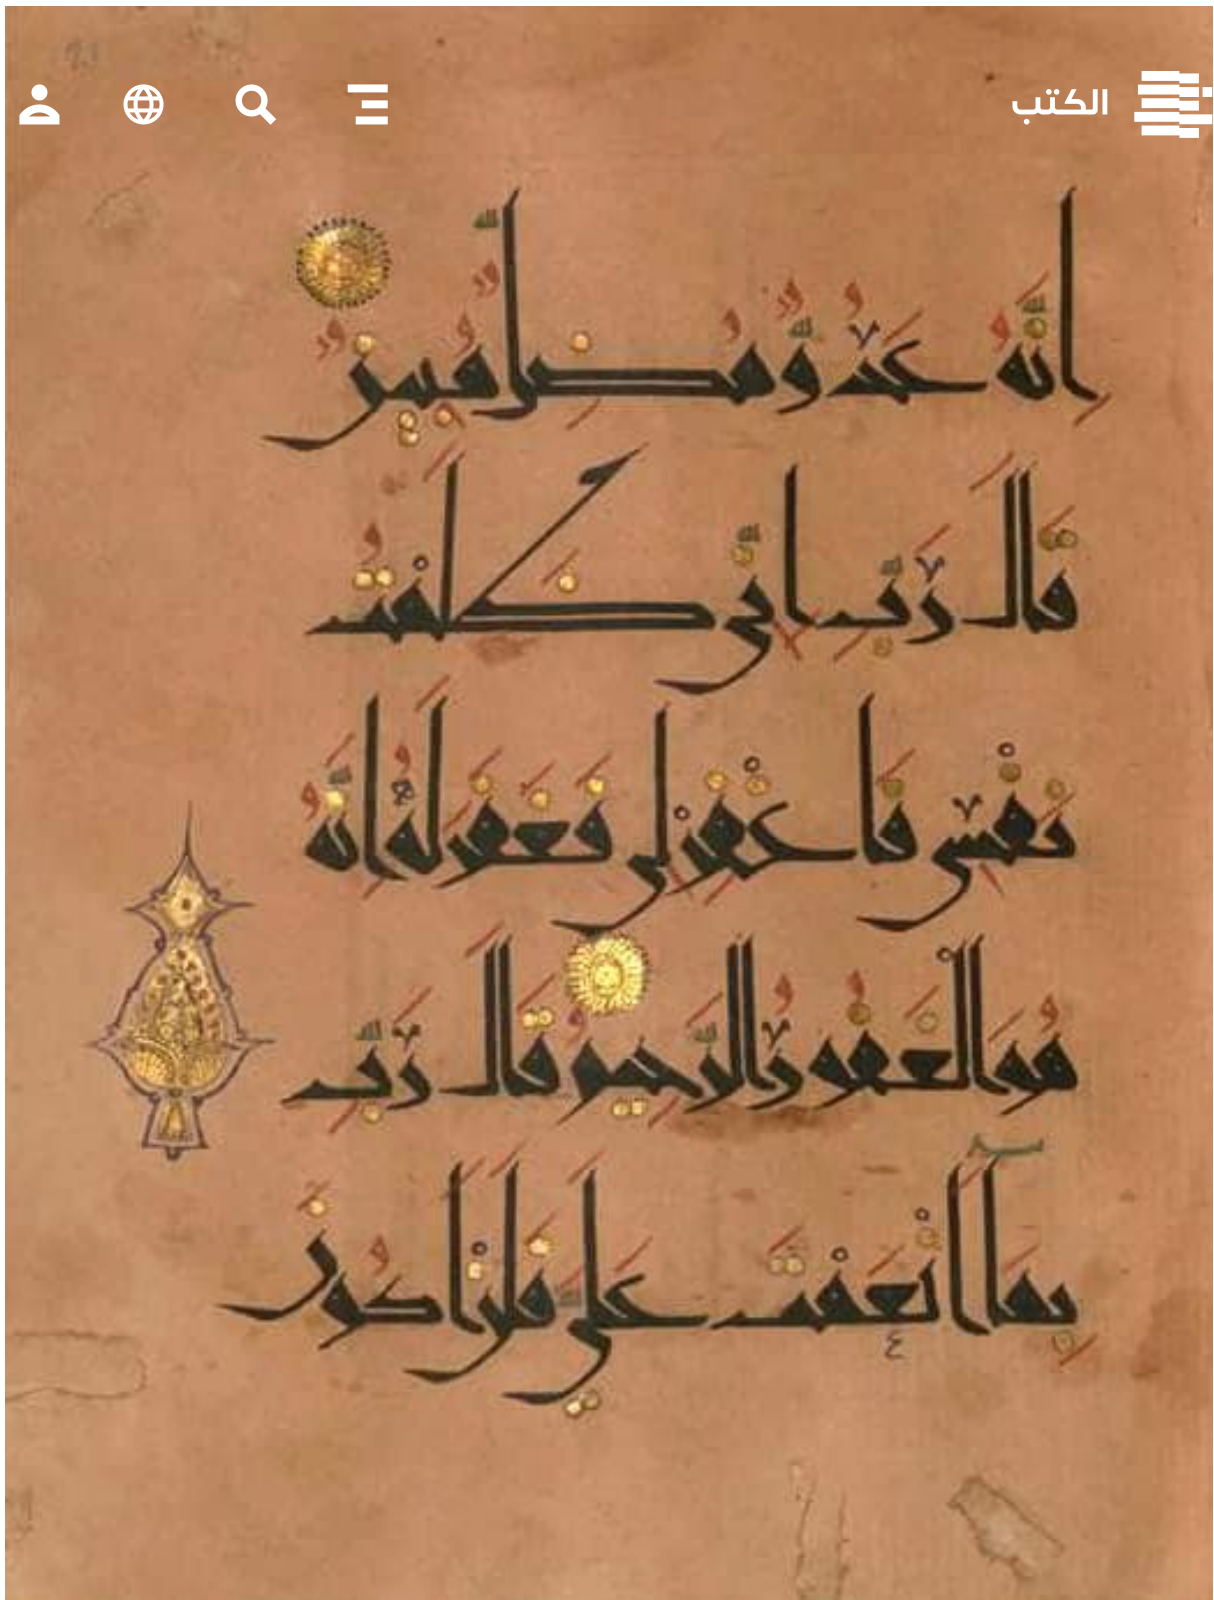 الكتب
اِنَّهُ عَدُوٌّ مُضِلٌّ مُبِينٌ
قَالَ رَبِّ اِنِّي ظَلَمْتُ
نَفْسِي فَاغْفِرْ لِي فَغَفَرَ لَهُ اِنَّهُ
هُوَ الْغَفُورُ الرَّحِيمُ قَالَ رَبِّ
بِمَآ اَنْعَمْتَ عَلَيَّ فَلَنْ اَكُونَ